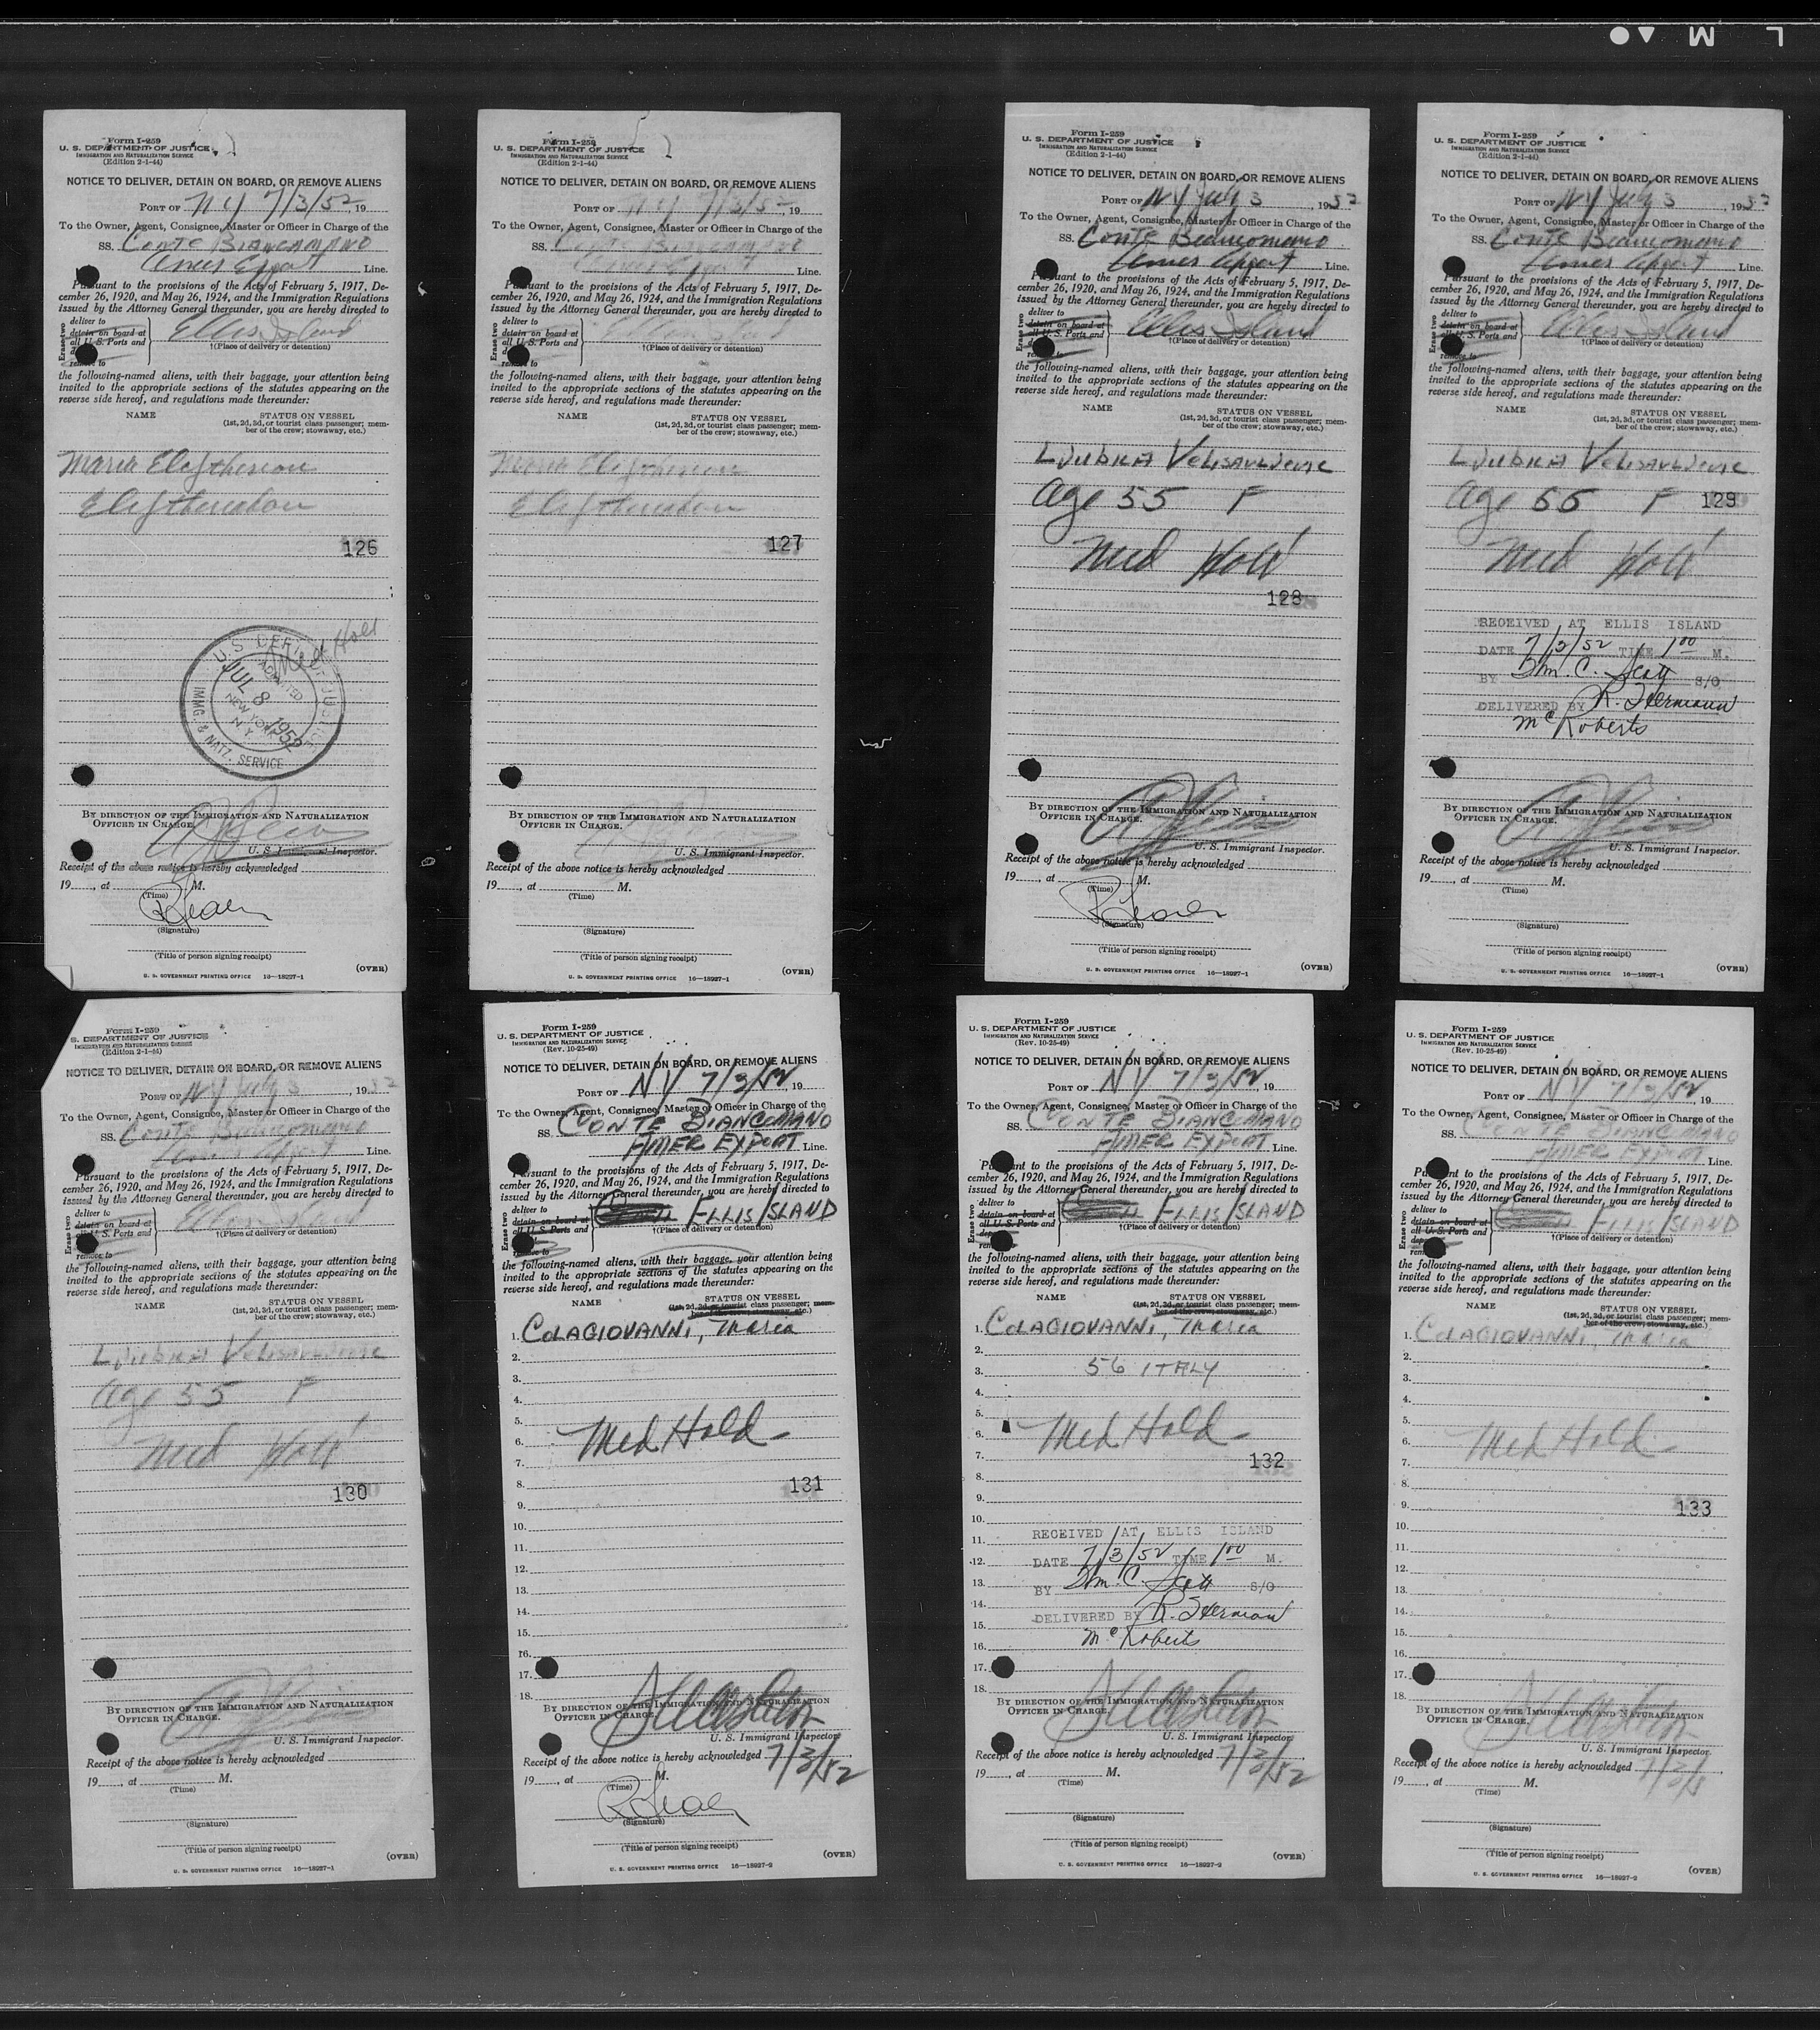 L M
Form I-259
U. S. DEPARTMENT OF JUSTICE
IMMIGRATION AND NATURALIZATION SERVICE
(Edition 2-1-44)
NOTICE TO DELIVER, DETAIN ON BOARD, OR REMOVE ALIENS
PORT OF NY 7/3/52, 19
To the Owner, Agent, Consignee, Master or Officer in Charge of the
SS. Conte BIANCAMANO
Amer Export Line.
Pursuant to the provisions of the Acts of February 5, 1917, De-
cember 26, 1920, and May 26, 1924, and the Immigration Regulations
issued by the Attorney General thereunder, you are hereby directed to
Erase two
deliver to
detain on board at
all U. S. Ports and
remove to
Ellis Island
†(Place of delivery or detention)
the following-named aliens, with their baggage, your attention being
invited to the appropriate sections of the statutes appearing on the
reverse side hereof, and regulations made thereunder:
NAME STATUS ON VESSEL
(1st, 2d, 3d, or tourist class passenger; mem-
ber of the crew; stowaway, etc.)
Maria
126
Med Hold
U.S. DEPT. OF JUSTICE
ADMITTED
JUL 8 1952
NEW YORK,
N.Y.
IMMG. & NATZ. SERVICE
BY DIRECTION OF THE IMMIGRATION AND NATURALIZATION
OFFICER IN CHARGE.
U. S. Immigrant Inspector.
Receipt of the above notice is hereby acknowledged
19, at M.
(Time)
(Signature)
(Title of person signing receipt)
U. S. GOVERNMENT PRINTING OFFICE 16—18927-1 (OVER)
Form I-259
U. S. DEPARTMENT OF JUSTICE
IMMIGRATION AND NATURALIZATION SERVICE
(Edition 2-1-44)
NOTICE TO DELIVER, DETAIN ON BOARD, OR REMOVE ALIENS
PORT OF NY 7/3/52, 19
To the Owner, Agent, Consignee, Master or Officer in Charge of the
SS. Conte BIANCAMANO
Amer Export Line.
Pursuant to the provisions of the Acts of February 5, 1917, De-
cember 26, 1920, and May 26, 1924, and the Immigration Regulations
issued by the Attorney General thereunder, you are hereby directed to
Erase two
deliver to
detain on board at
all U. S. Ports and
remove to
Ellis Island
†(Place of delivery or detention)
the following-named aliens, with their baggage, your attention being
invited to the appropriate sections of the statutes appearing on the
reverse side hereof, and regulations made thereunder:
NAME STATUS ON VESSEL
(1st, 2d, 3d, or tourist class passenger; mem-
ber of the crew; stowaway, etc.)
Maria
127
BY DIRECTION OF THE IMMIGRATION AND NATURALIZATION
OFFICER IN CHARGE.
U. S. Immigrant Inspector.
Receipt of the above notice is hereby acknowledged
19, at M.
(Time)
(Signature)
(Title of person signing receipt)
U. S. GOVERNMENT PRINTING OFFICE 16—18927-1 (OVER)
Form I-259
U. S. DEPARTMENT OF JUSTICE
IMMIGRATION AND NATURALIZATION SERVICE
(Edition 2-1-44)
NOTICE TO DELIVER, DETAIN ON BOARD, OR REMOVE ALIENS
PORT OF NY July 3, 1952
To the Owner, Agent, Consignee, Master or Officer in Charge of the
SS. Conte Biancomano
Amer Export Line.
Pursuant to the provisions of the Acts of February 5, 1917, De-
cember 26, 1920, and May 26, 1924, and the Immigration Regulations
issued by the Attorney General thereunder, you are hereby directed to
Erase two
deliver to
detain on board at
all U. S. Ports and
remove to
Ellis Island
†(Place of delivery or detention)
the following-named aliens, with their baggage, your attention being
invited to the appropriate sections of the statutes appearing on the
reverse side hereof, and regulations made thereunder:
NAME STATUS ON VESSEL
(1st, 2d, 3d, or tourist class passenger; mem-
ber of the crew; stowaway, etc.)
Ljubica Velisavljevic
Age 55 F
Med Hold
128
BY DIRECTION OF THE IMMIGRATION AND NATURALIZATION
OFFICER IN CHARGE.
U. S. Immigrant Inspector.
Receipt of the above notice is hereby acknowledged
19, at M.
(Time)
(Signature)
(Title of person signing receipt)
U. S. GOVERNMENT PRINTING OFFICE 16—18927-1 (OVER)
Form I-259
U. S. DEPARTMENT OF JUSTICE
IMMIGRATION AND NATURALIZATION SERVICE
(Edition 2-1-44)
NOTICE TO DELIVER, DETAIN ON BOARD, OR REMOVE ALIENS
PORT OF NY July 3, 1952
To the Owner, Agent, Consignee, Master or Officer in Charge of the
SS. Conte Biancomano
Amer Export Line.
Pursuant to the provisions of the Acts of February 5, 1917, De-
cember 26, 1920, and May 26, 1924, and the Immigration Regulations
issued by the Attorney General thereunder, you are hereby directed to
Erase two
deliver to
detain on board at
all U. S. Ports and
remove to
Ellis Island
†(Place of delivery or detention)
the following-named aliens, with their baggage, your attention being
invited to the appropriate sections of the statutes appearing on the
reverse side hereof, and regulations made thereunder:
NAME STATUS ON VESSEL
(1st, 2d, 3d, or tourist class passenger; mem-
ber of the crew; stowaway, etc.)
Ljubica Velisavljevic
Age 55 F 129
Med Hold
RECEIVED AT ELLIS ISLAND
DATE 7/3/52 TIME 1 00 M.
BY Wm. C. Scott S/O
DELIVERED BY R. Herman
McRoberts
BY DIRECTION OF THE IMMIGRATION AND NATURALIZATION
OFFICER IN CHARGE.
U. S. Immigrant Inspector.
Receipt of the above notice is hereby acknowledged
19, at M.
(Time)
(Signature)
(Title of person signing receipt)
U. S. GOVERNMENT PRINTING OFFICE 16—18927-1 (OVER)
Form I-259
S. DEPARTMENT OF JUSTICE
IMMIGRATION AND NATURALIZATION SERVICE
(Edition 2-1-44)
NOTICE TO DELIVER, DETAIN ON BOARD, OR REMOVE ALIENS
PORT OF NY July 3, 1952
To the Owner, Agent, Consignee, Master or Officer in Charge of the
SS. Conte Biancomano
Amer Export Line.
Pursuant to the provisions of the Acts of February 5, 1917, De-
cember 26, 1920, and May 26, 1924, and the Immigration Regulations
issued by the Attorney General thereunder, you are hereby directed to
Erase two
deliver to
detain on board at
all U. S. Ports and
remove to
Ellis Island
†(Place of delivery or detention)
the following-named aliens, with their baggage, your attention being
invited to the appropriate sections of the statutes appearing on the
reverse side hereof, and regulations made thereunder:
NAME STATUS ON VESSEL
(1st, 2d, 3d, or tourist class passenger; mem-
ber of the crew; stowaway, etc.)
Ljubica Velisavljevic
Age 55 F
Med Hold
130
BY DIRECTION OF THE IMMIGRATION AND NATURALIZATION
OFFICER IN CHARGE.
U. S. Immigrant Inspector.
Receipt of the above notice is hereby acknowledged
19, at M.
(Time)
(Signature)
(Title of person signing receipt)
U. S. GOVERNMENT PRINTING OFFICE 16—18927-1 (OVER)
Form I-259
U. S. DEPARTMENT OF JUSTICE
IMMIGRATION AND NATURALIZATION SERVICE
(Rev. 10-25-49)
NOTICE TO DELIVER, DETAIN ON BOARD, OR REMOVE ALIENS
PORT OF NY 7/3/52, 19
To the Owner, Agent, Consignee, Master or Officer in Charge of the
SS. CONTE BIANCOMANO
AMER EXPORT Line.
Pursuant to the provisions of the Acts of February 5, 1917, De-
cember 26, 1920, and May 26, 1924, and the Immigration Regulations
issued by the Attorney General thereunder, you are hereby directed to
Erase two
deliver to
detain on board at
all U. S. Ports and
remove to
ELLIS ISLAND
†(Place of delivery or detention)
the following-named aliens, with their baggage, your attention being
invited to the appropriate sections of the statutes appearing on the
reverse side hereof, and regulations made thereunder:
NAME STATUS ON VESSEL
(1st, 2d, 3d, or tourist class passenger; mem-
ber of the crew; stowaway, etc.)
1. COLAGIOVANNI, Maria
2.
3.
4.
5.
6. Med Hold
7.
8. 131
9.
10.
11.
12.
13.
14.
15.
16.
17.
18.
BY DIRECTION OF THE IMMIGRATION AND NATURALIZATION
OFFICER IN CHARGE.
U. S. Immigrant Inspector.
Receipt of the above notice is hereby acknowledged 7/3/52
19, at M.
(Time)
(Signature)
(Title of person signing receipt)
U. S. GOVERNMENT PRINTING OFFICE 16—18927-2 (OVER)
Form I-259
U. S. DEPARTMENT OF JUSTICE
IMMIGRATION AND NATURALIZATION SERVICE
(Rev. 10-25-49)
NOTICE TO DELIVER, DETAIN ON BOARD, OR REMOVE ALIENS
PORT OF NY 7/3/52, 19
To the Owner, Agent, Consignee, Master or Officer in Charge of the
SS. CONTE BIANCOMANO
AMER EXPORT Line.
Pursuant to the provisions of the Acts of February 5, 1917, De-
cember 26, 1920, and May 26, 1924, and the Immigration Regulations
issued by the Attorney General thereunder, you are hereby directed to
Erase two
deliver to
detain on board at
all U. S. Ports and
remove to
ELLIS ISLAND
†(Place of delivery or detention)
the following-named aliens, with their baggage, your attention being
invited to the appropriate sections of the statutes appearing on the
reverse side hereof, and regulations made thereunder:
NAME STATUS ON VESSEL
(1st, 2d, 3d, or tourist class passenger; mem-
ber of the crew; stowaway, etc.)
1. COLAGIOVANNI, Maria
2.
3. 56 ITALY
4.
5.
6. Med Hold
7. 132
8.
9.
10.
11. RECEIVED AT ELLIS ISLAND
12. DATE 7/3/52 TIME 1 00 M.
13. BY Wm. C. Scott S/O
14.
15. DELIVERED BY R. Herman
16. McRoberts
17.
18.
BY DIRECTION OF THE IMMIGRATION AND NATURALIZATION
OFFICER IN CHARGE.
U. S. Immigrant Inspector.
Receipt of the above notice is hereby acknowledged 7/3/52
19, at M.
(Time)
(Signature)
(Title of person signing receipt)
U. S. GOVERNMENT PRINTING OFFICE 16—18927-2 (OVER)
Form I-259
U. S. DEPARTMENT OF JUSTICE
IMMIGRATION AND NATURALIZATION SERVICE
(Rev. 10-25-49)
NOTICE TO DELIVER, DETAIN ON BOARD, OR REMOVE ALIENS
PORT OF NY 7/3/52, 19
To the Owner, Agent, Consignee, Master or Officer in Charge of the
SS. CONTE BIANCOMANO
AMER EXPORT Line.
Pursuant to the provisions of the Acts of February 5, 1917, De-
cember 26, 1920, and May 26, 1924, and the Immigration Regulations
issued by the Attorney General thereunder, you are hereby directed to
Erase two
deliver to
detain on board at
all U. S. Ports and
remove to
ELLIS ISLAND
†(Place of delivery or detention)
the following-named aliens, with their baggage, your attention being
invited to the appropriate sections of the statutes appearing on the
reverse side hereof, and regulations made thereunder:
NAME STATUS ON VESSEL
(1st, 2d, 3d, or tourist class passenger; mem-
ber of the crew; stowaway, etc.)
1. COLAGIOVANNI, Maria
2.
3.
4.
5.
6. Med Hold
7.
8.
9. 133
10.
11.
12.
13.
14.
15.
16.
17.
18.
BY DIRECTION OF THE IMMIGRATION AND NATURALIZATION
OFFICER IN CHARGE.
U. S. Immigrant Inspector.
Receipt of the above notice is hereby acknowledged 7/3/5
19, at M.
(Time)
(Signature)
(Title of person signing receipt)
U. S. GOVERNMENT PRINTING OFFICE 16—18927-2 (OVER)